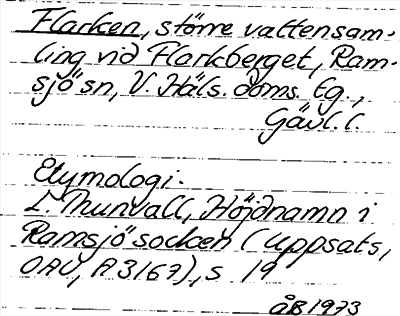 Flarken, större vattensam-
ling vid Flarkberget, Ram-
sjö sn, V. Häls. doms. tg.,
Gävl. l.
Etymologi:
L. Thunvall, Höjdnamn i
Ramsjö socken (uppsats,
OAU, A 3167), s 19
ÅB 1973